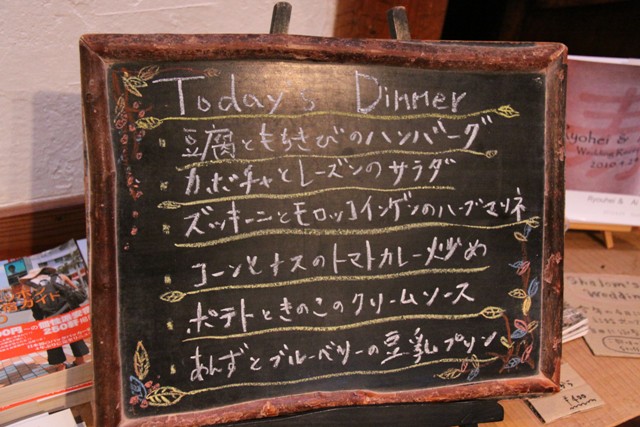 Today's Dinner
豆腐ともちきびのハンバーグ
カボチャとレーズンのサラダ
ズッキーニとモロッコインゲンのハーブマリネ
コーンとナスのトマトカレー炒め
ポテトときのこのクリームソース
あんずとブルーベリーの豆乳プリン
Wedding